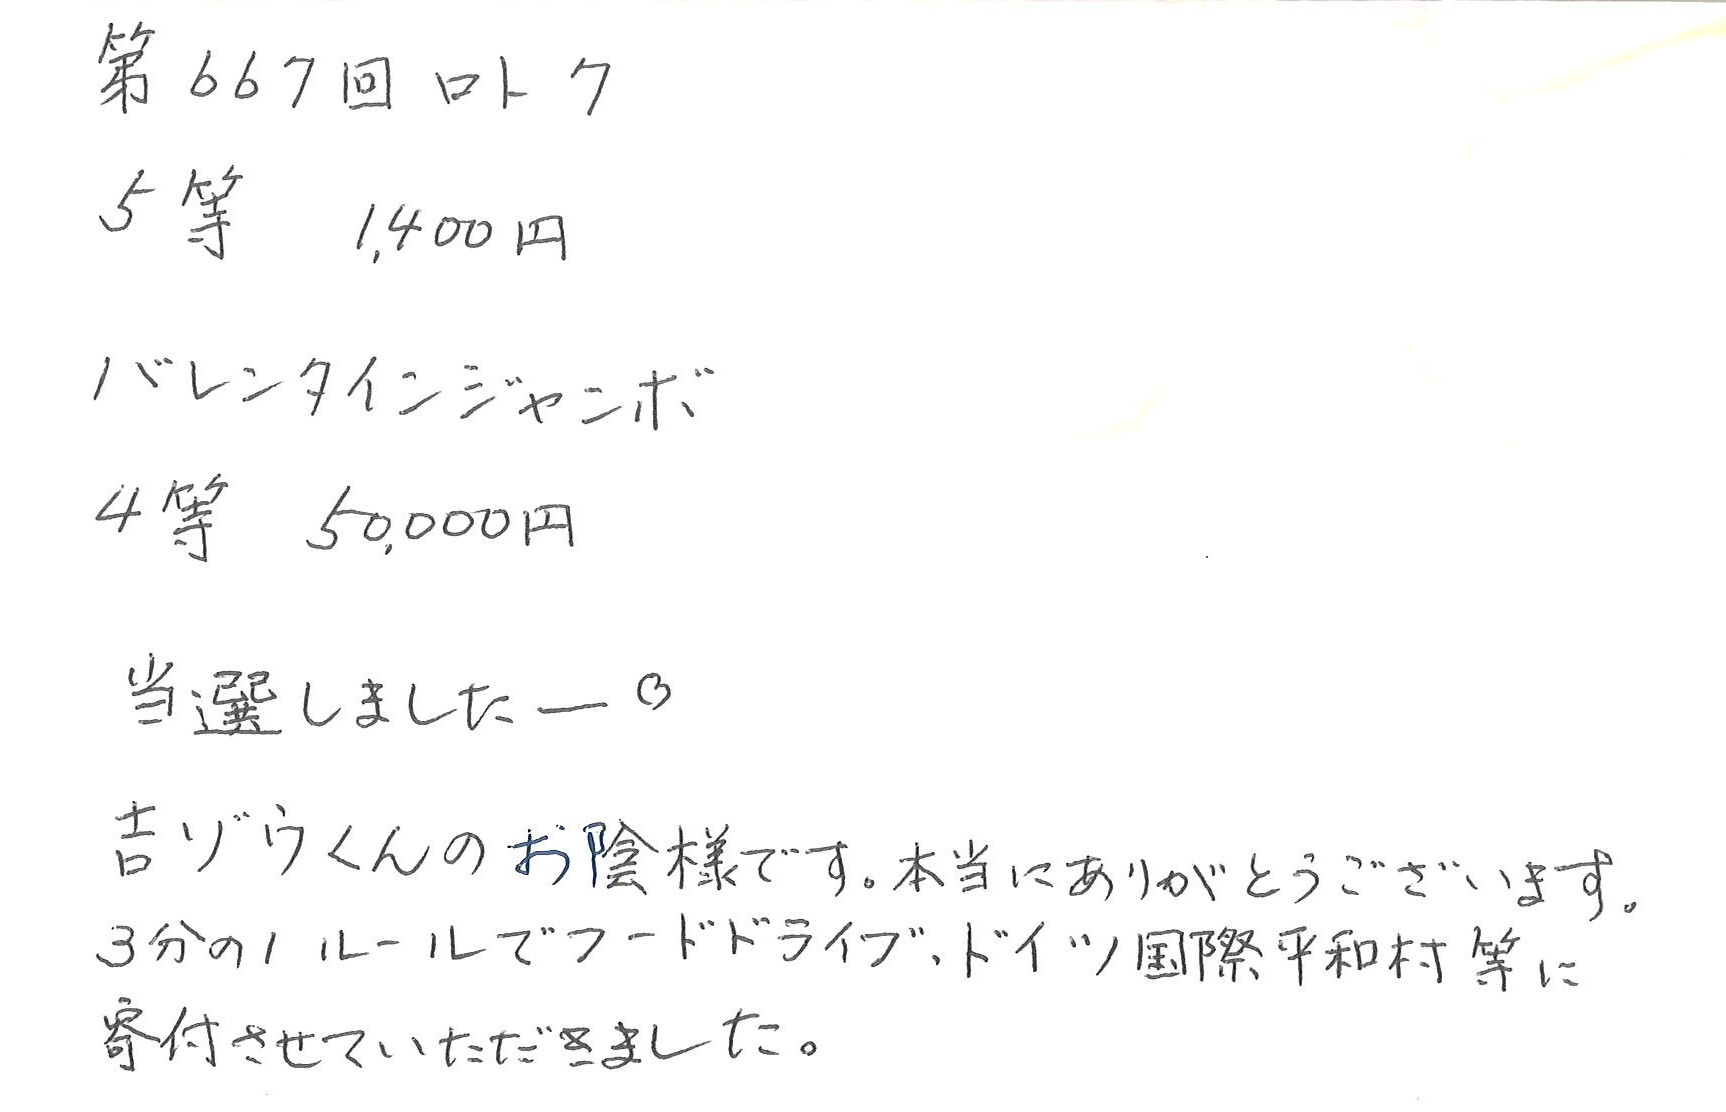 第667回 ロト7
5等 1,400円
バレンタインジャンボ
4等 50,000円
当選しましたー。
吉ゾウくんのお陰様です。本当にありがとうございます。
3分の1ルールでフードドライブ、ドイツ国際平和村等に
寄付させていただきました。